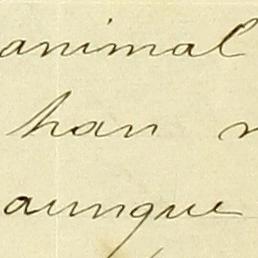 animal
han
aunque